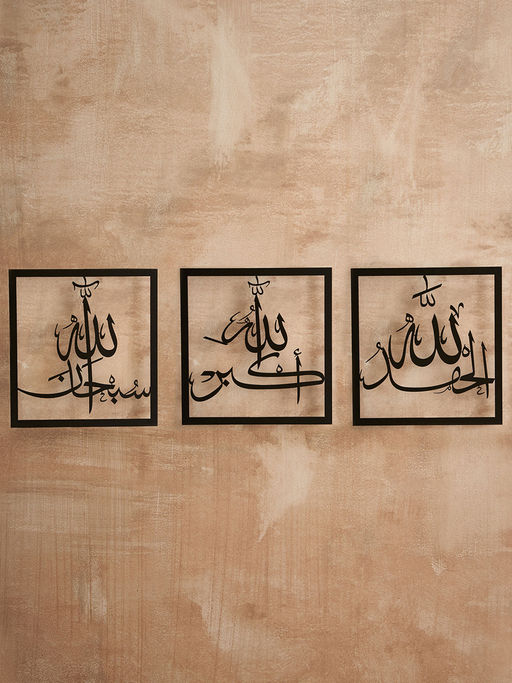 الحمد لله
الله أكبر
سبحان الله